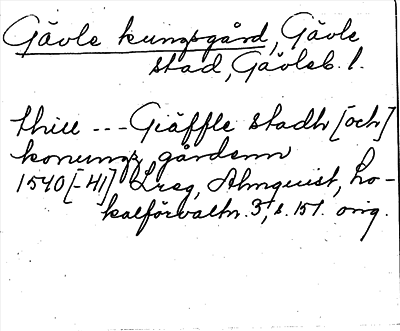 Gävle kungsgård, Gävle
stad, Gävleb. l.
thill --- Giäffle stadh [och]
konungz gårdenn
1540[-41] Lreg, Almquist, Lo-
kalförvaltn. 3, s. 151. orig.